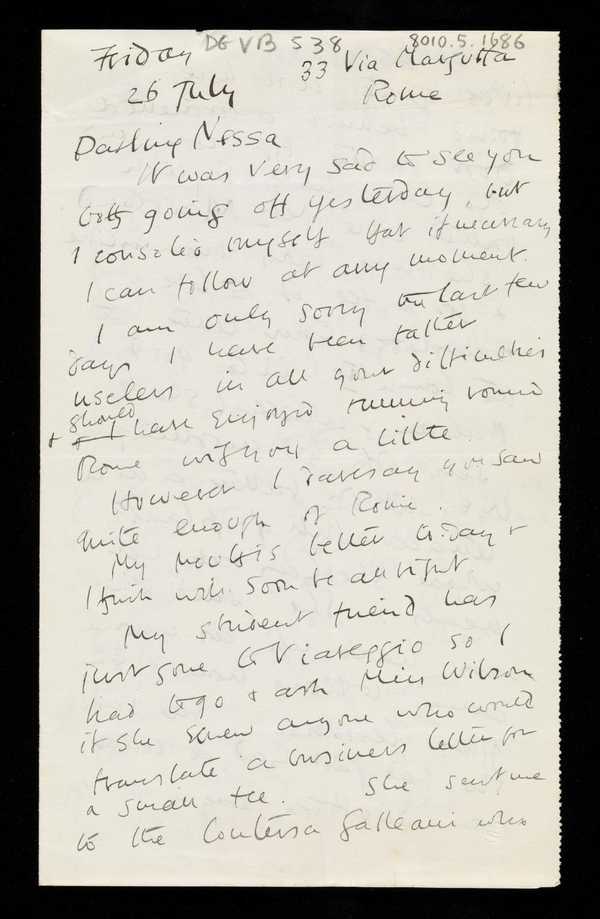 DG VB 538
8010.5.1686
Friday
33 Via Margutta
26 July
Rome
Darling Nessa
It was very sad to see you
both going off yesterday, but
I consoled myself that if necessary
I can follow at any moment.
I am only sorry the last few
days I have been rather
useless in all your difficulties
+ should I have enjoyed running round
Rome with you a little.
However I daresay you saw
quite enough of Rome.
My mouth is better to-day +
I think will soon be all right
My student friend has
just gone to Viareggio so I
had to go + ask Miss Wilson
if she knew anyone who would
translate a business letter for
a small fee. She sent me
to the Contessa Galleani who